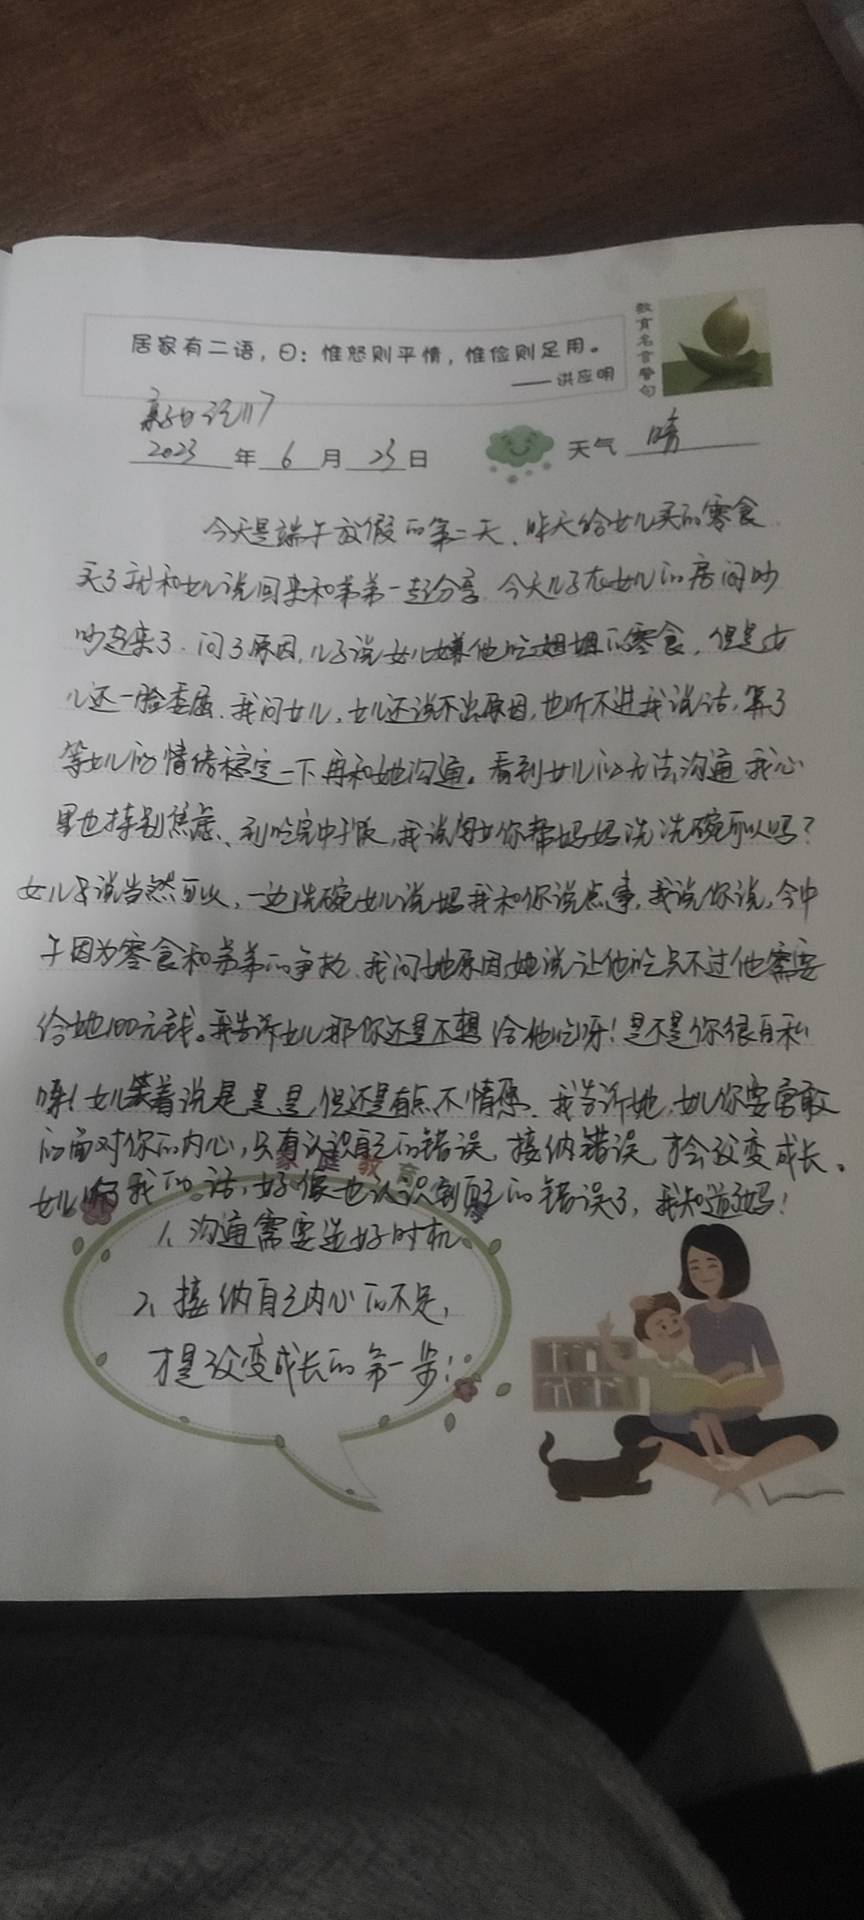 居家有二语，曰：惟恕则平情，惟俭则足用。
——洪应明
教育名言警句
亲子日记117
2023年6月23日 天气 晴
今天是端午放假的第二天、昨天给女儿买的零食
买了就和女儿说回来和弟弟一起分享、今天儿子在女儿的房间吵
吵起来了、问了原因，儿子说女儿嫌他吃姐姐的零食，但是女
儿还一脸委屈、我问女儿，女儿还说不出原因，也听不进我说话，算了
等女儿的情绪稳定一下再和她沟通。看到女儿的无法沟通，我心
里也特别焦虑、到吃完中午饭，我说闺女你帮妈妈洗洗碗可以吗？
女儿说当然可以，一边洗碗女儿说妈我和你说点事，我说你说，今中
午因为零食和弟弟的争执、我问她原因，她说让他吃点不过他需要
给她100元钱。我告诉女儿那你还是不想给他吃呀！是不是你很自私
嘛！女儿笑着说是是是，但还是有点不情愿、我告诉她，女儿你要勇敢
的面对你的内心，只有认识自己的错误，接纳错误，才会改变成长。
女儿听了我的话，好像也认识到自己的错误了，我知道了妈！
家庭教育
1、沟通需要选好时机、
2、接纳自己内心的不足，
才是改变成长的第一步！